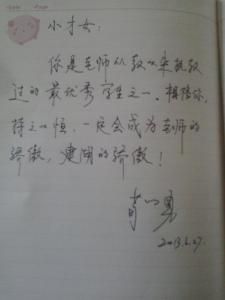 小才女:
你是老师从教以来执教
过的最优秀学生之一。相信你,
持之以恒,一定会成为老师的
骄傲,建湖的骄傲!
2013.6.27.